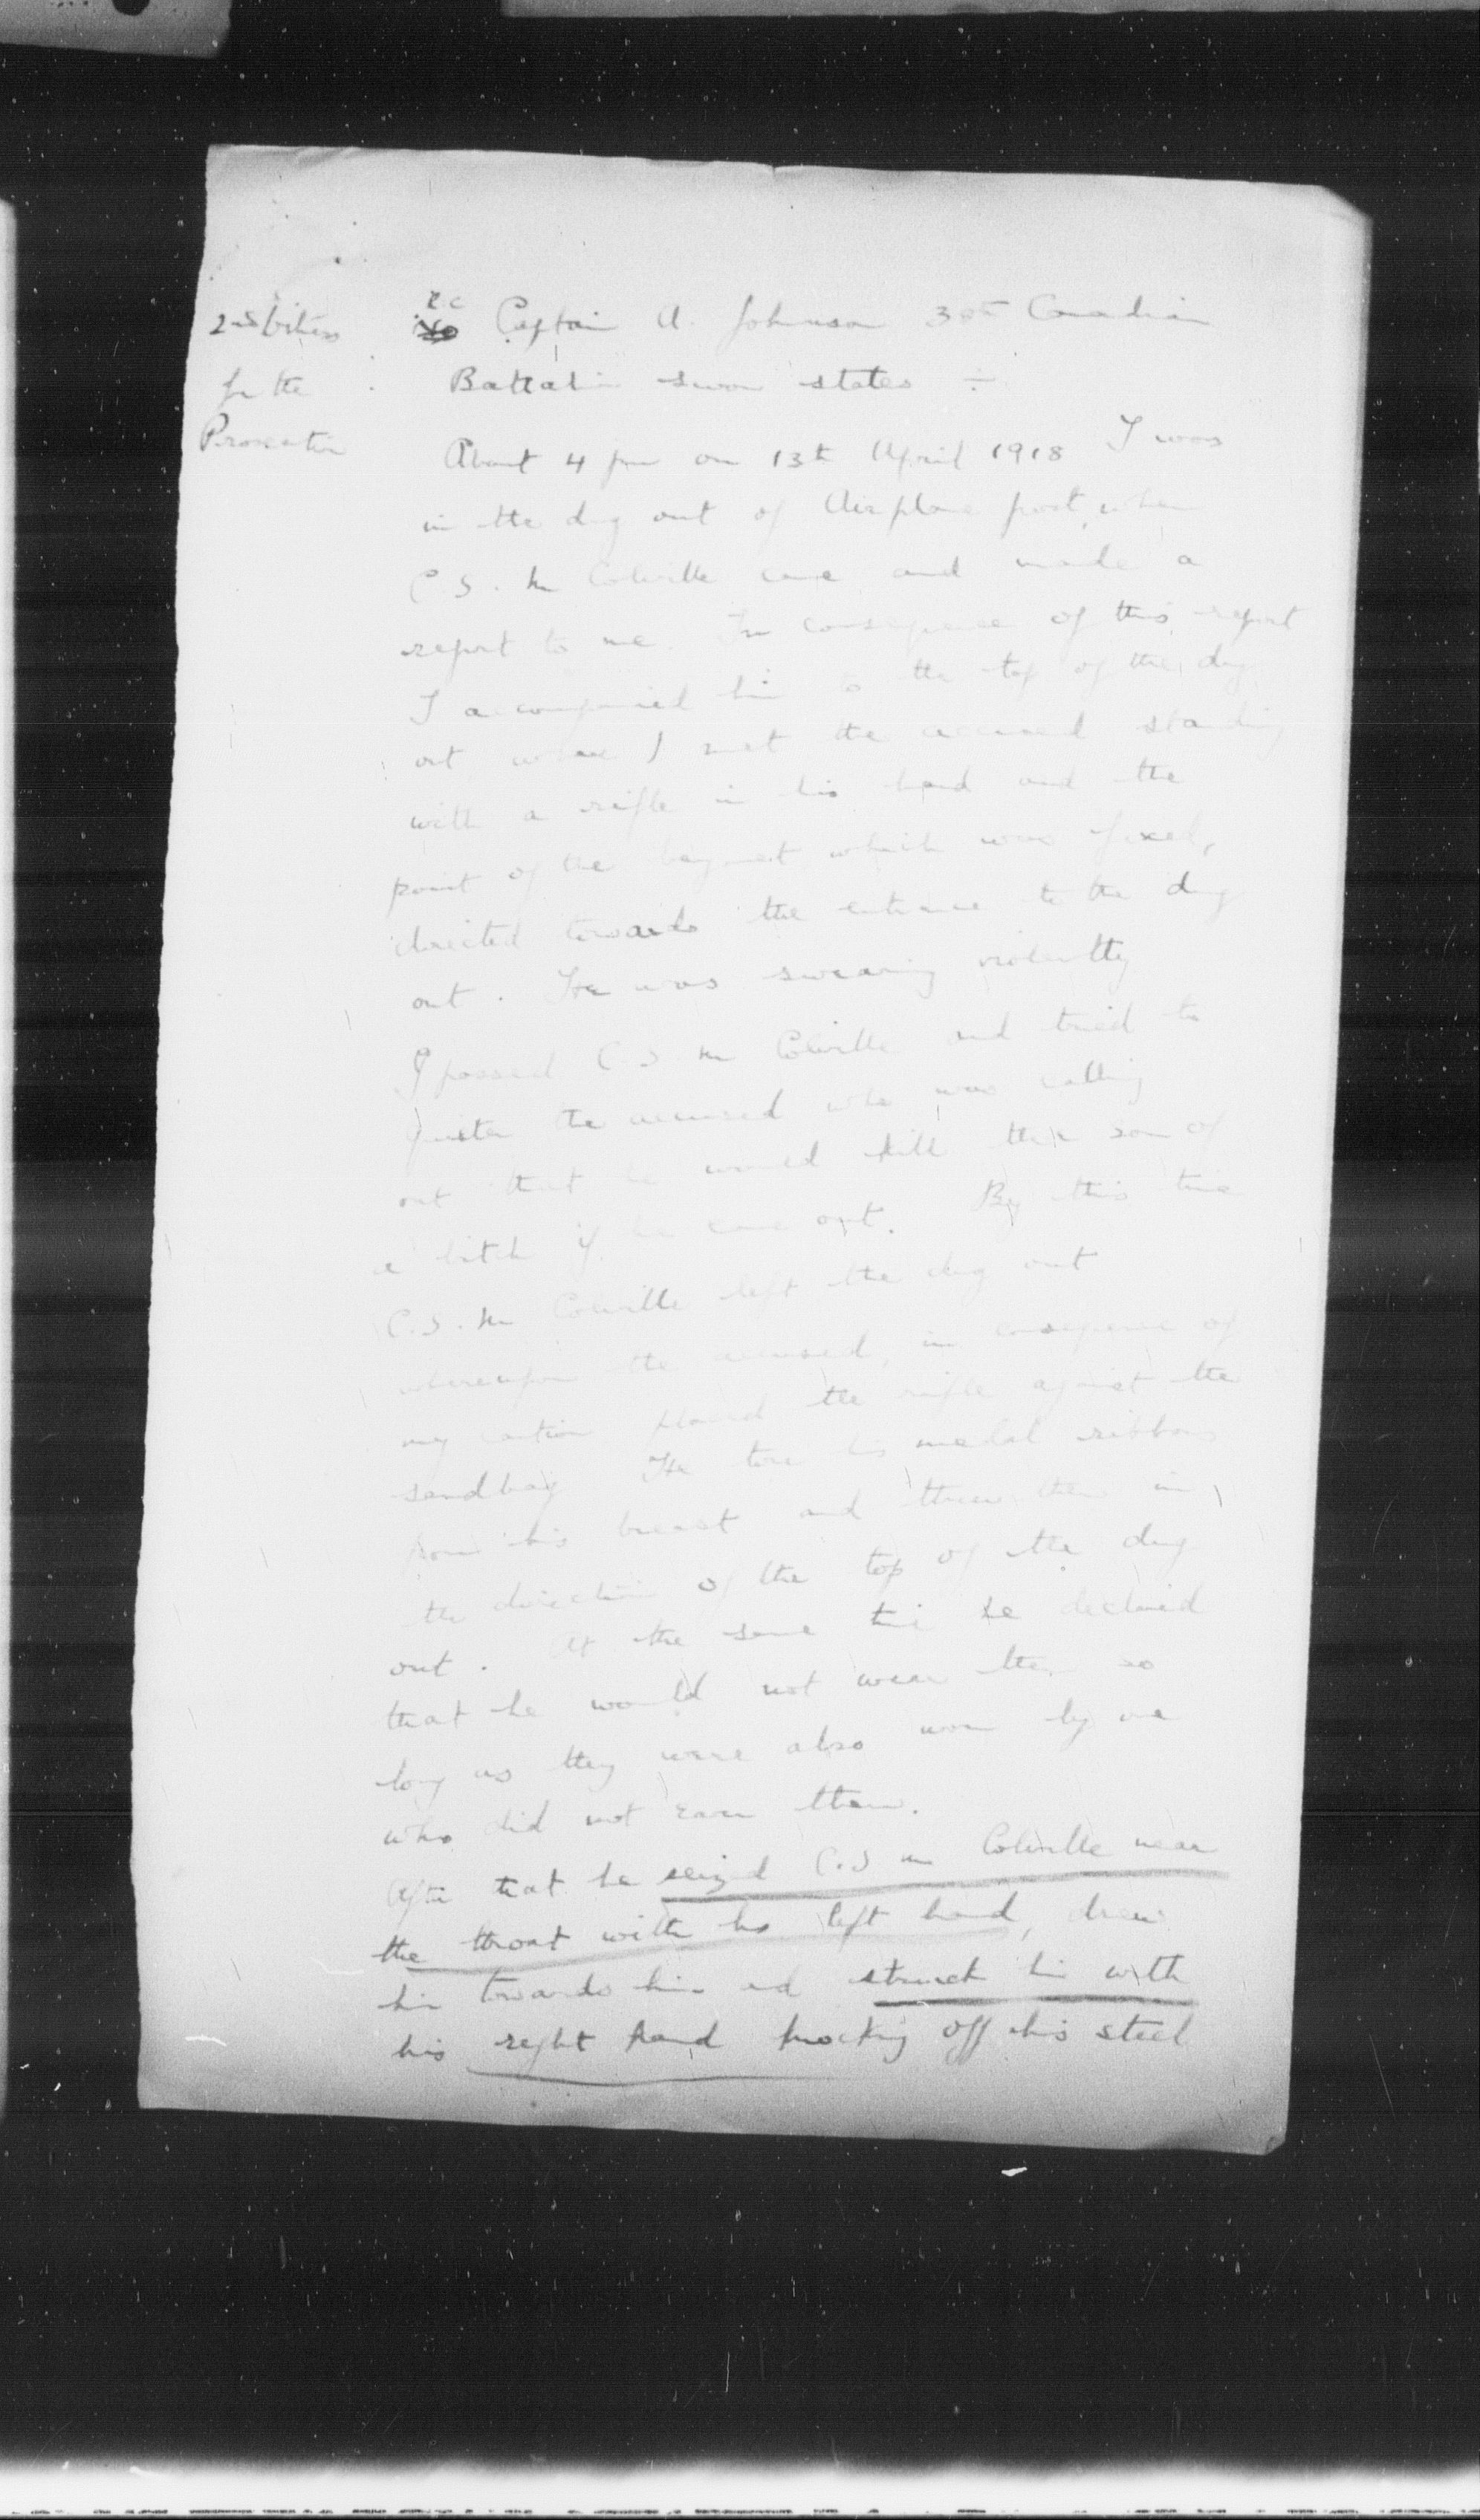 2nd Witness
for the
Prosecution
Captain A. Johnson Canadian
Battalion sworn states :-
About 4 pm on 13th April 1918 I was
in the dug out of Airplane post, when
C.S.M Colville came and made a
report to me. In consequence of this report
I accompanied him to the top of the dug
out where I met the accused standing
with a rifle in his hand and the
point of the bayonet which was fixed,
directed towards the entrance to the dug
out. He was swearing violently
I passed C.S.M Colville and tried to
quieten the accused who was calling
out that he would kill the son of
a bitch if he came out. By this time
C.S.M Colville left the dug out
whereupon the accused, in consequence of
my caution placed the rifle against the
sandbag He tore his medal ribbons
from his breast and threw them in
the direction of the top of the dug
out. At the same time he declared
that he would not wear them so
long as they were also worn by one
who did not earn them.
After that he seized C.S.M Colville near
the throat with his left hand, drew
him towards him and struck him with
his right hand knocking off his steel